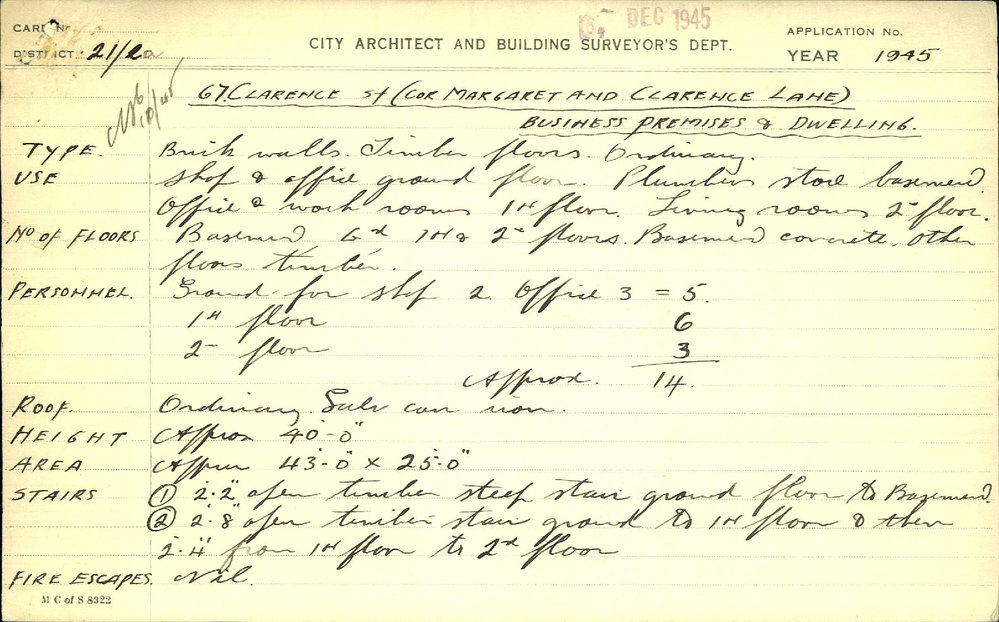 CARD No.
DEC 1945
APPLICATION No.
DISTRICT 21/2a
CITY ARCHITECT AND BUILDING SURVEYOR'S DEPT.
YEAR 1945
67 CLARENCE St (COR MARGARET AND CLARENCE LANE)
BUSINESS PREMISES & DWELLING.
TYPE. Brick walls. Timber floors. Ordinary.
USE Shop & office ground floor. Plumbers store basement.
Office & work rooms 1st floor. Living rooms 2nd floor.
No OF FLOORS Basement, Gd 1st & 2nd floors. Basement concrete. Other
floors timber.
PERSONNEL. Ground floor shop 2. Office 3 = 5.
1st floor 6
2nd floor 3
Approx. 14.
ROOF. Ordinary. Galv corr iron.
HEIGHT Approx 40'-0"
AREA Approx 43'-0" x 25'-0"
STAIRS ① 2'.2" open timber steep stair ground floor to Basement.
② 2'.8" open timber stair ground to 1st floor & then
2'.4" from 1st floor to 2nd floor
FIRE ESCAPES. Nil.
M C of S 8322